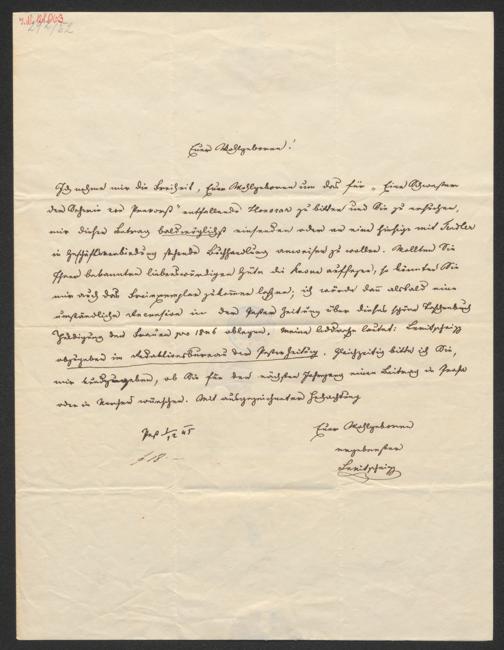 Euer Wohlgeboren!
Ich nehme mir die Freiheit, Euer Wohlgeboren um das für „Eine Schwester
der Seherin von Prevorst" entfallende Honorar zu bitten und Sie zu ersuchen,
mir diesen Betrag baldmöglichst einsenden oder an eine hiesige mit Tendler
in Geschäftsverbindung stehende Buchhandlung anweisen zu wollen. Wollten Sie
Ihrer bekannten liebenswürdigen Güte die Krone aufsetzen, so könnten Sie
mir auch das Freiexemplar zukommen lassen; ich würde dann alsbald eine
umständliche Recension in der Pester Zeitung über dieses schöne Taschenbuch
Huldigung den Frauen pro 1846 ablegen. Meine Adresse lautet: Levitschnigg
abzugeben im Redactionsbureau der Pesterzeitung. Gleichzeitig bitte ich Sie,
mir kundzugeben, ob Sie für den nächsten Jahrgang einen Beitrag in Prosa
oder in Versen wünschen. Mit ausgezeichneter Hochachtung
Pest 1/12 45
Euer Wohlgeboren
ergebenster
Levitschnigg